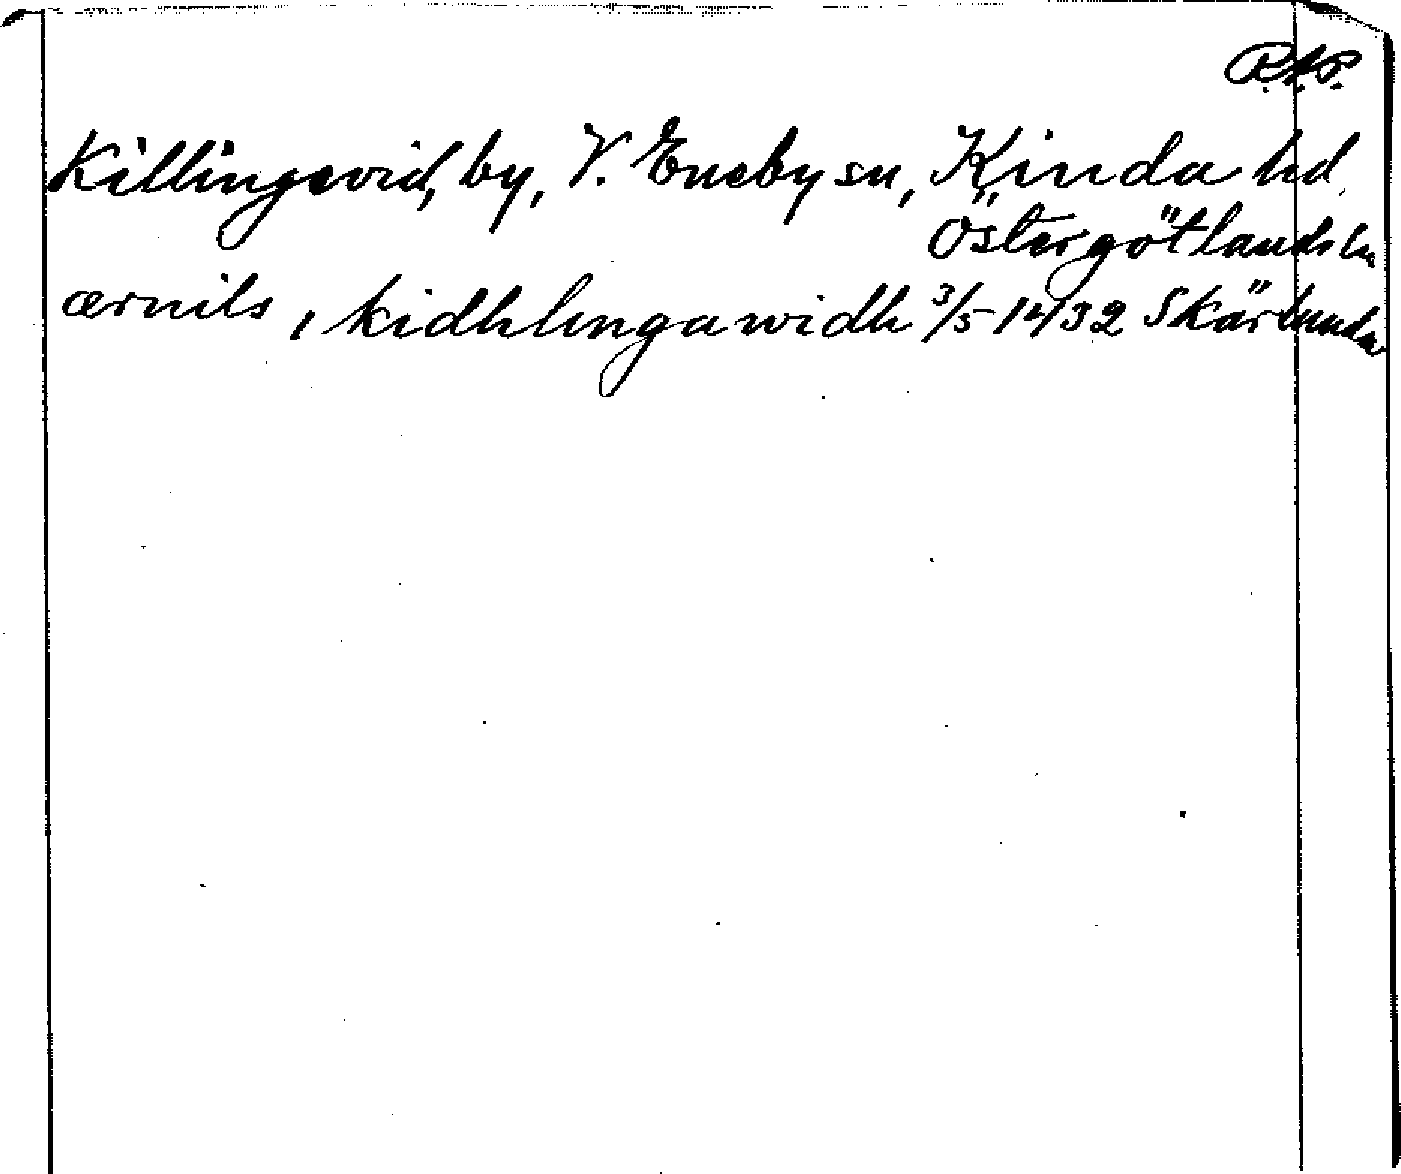 R.A.P.
Killingevid, by, V. Eneby sn, Kinda hd
Östergötlands ln
ærnils, i kidhlingawidh 3/5 1432 Skärkunda